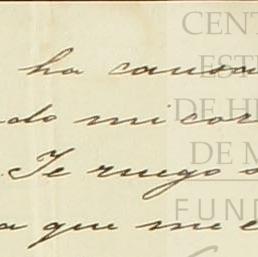 ha causa
do mi cor
Te ruego s
a que me e
CENT
ESTU
DE HI
DE M
FUND